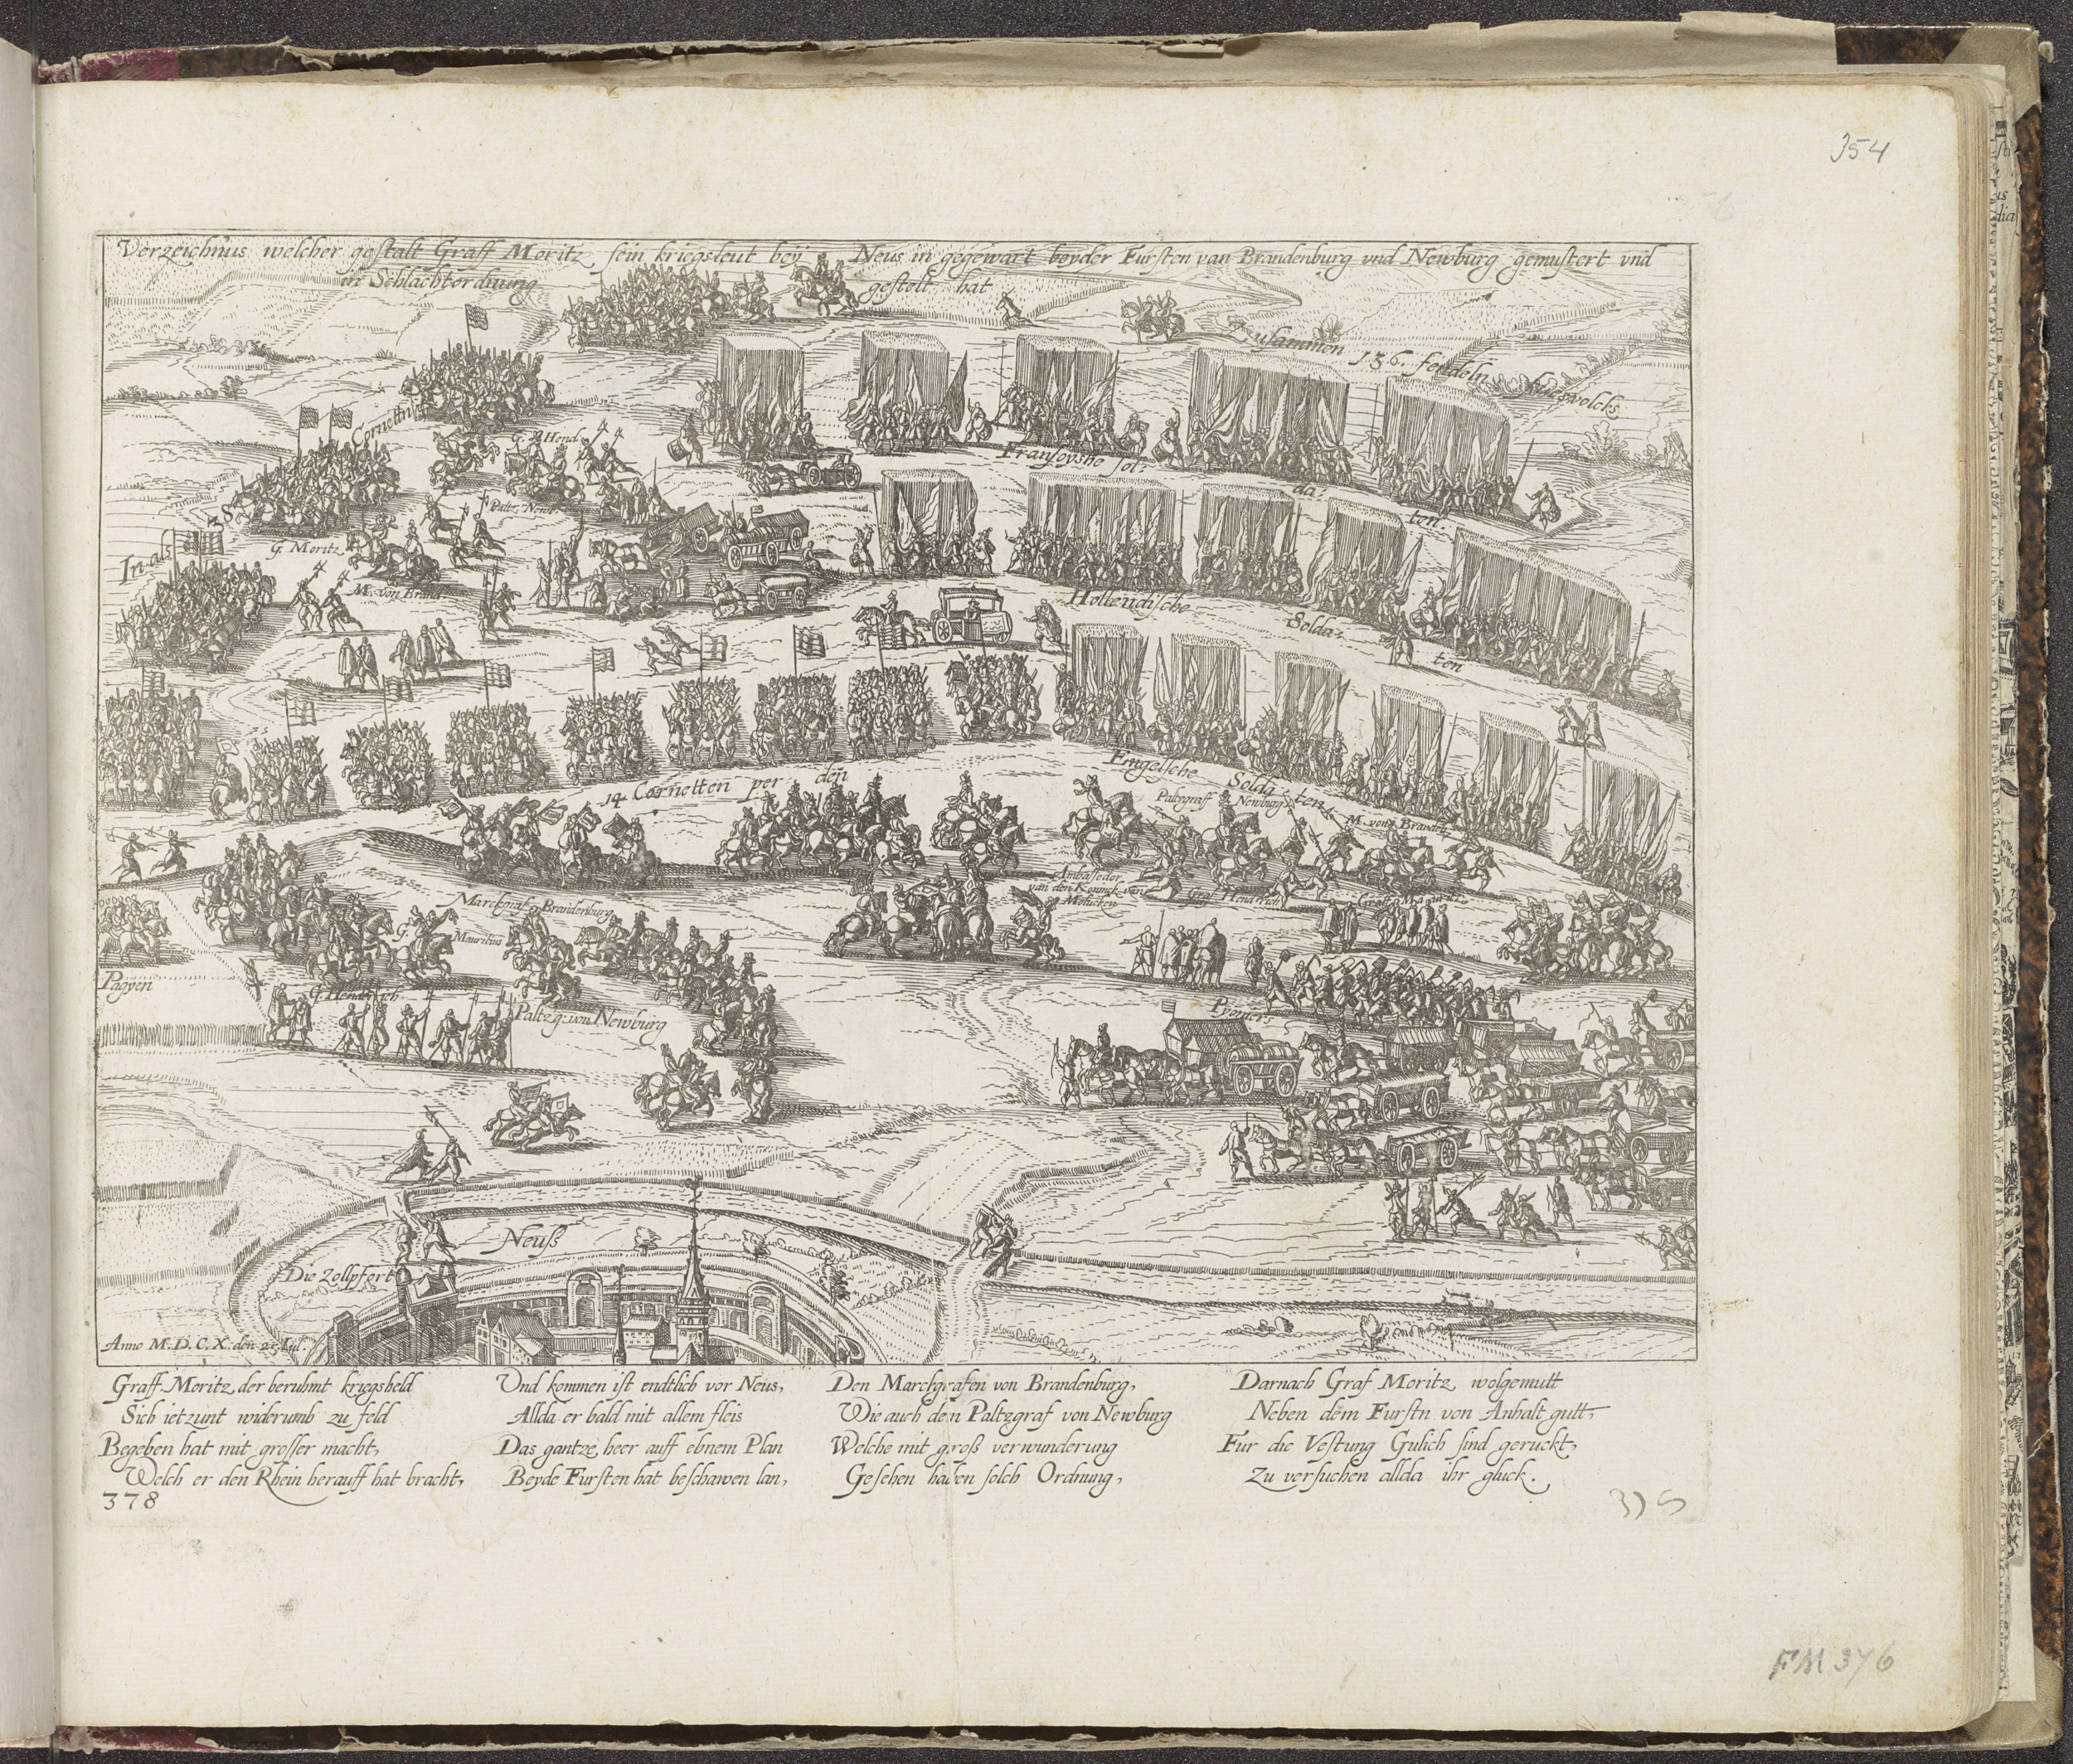 354
Verzeichnus welcher gestalt Graff Moritz sein kriegsleut bey Neus in gegewart beyder Fursten van Brandenburg vnd Newburg gemustert vnd
in Schlachtordnung gestelt hat
Zusammen 136. fendeln fuesvolcks
Cornetten
G. Hend.
Fransoysche sol:
da:
ten.
28
Paltz. Newb.
In als
G. Moritz
M. von Brandenb.
Hollendische
Solda:
ten
14 Cornetten per den
Engelsche Solda ten
Paltzgraff Newburg
M. von Brandeb.
Ambassedor
van den Koninck van
Molucken
Graf Hendrich
Graff Mauritz
Marckgraf v. Brandenburg
G. Mauritius
Pagyen
G. Henderich
Paltzg: von Newburg
Pyonier:
Neuss
Die Zollpfort
Anno M.D.C.X. den 21 Iul.
Graff Moritz der beruhmt kriegsheld
Sich ietzunt widerumb zu feld
Begeben hat mit grosser macht,
Welch er den Rhein herauff hat bracht,
Und kommen ist endtlich vor Neus,
Allda er bald mit allem fleis
Das gantze heer auff ebnem Plan
Beyde Fursten hat beschawen lan,
Den Marckgrafen von Brandenburg,
Wie auch den Paltzgraf von Newburg
Welche mit groß verwunderung
Gesehen haben solch Ordnung,
Darnach Graf Moritz wolgemutt
Neben dem Furstn von Anhalt gutt,
Fur die Vestung Gulich sind geruckt,
Zu versuchen allda ihr gluck.
378
375
FM 376